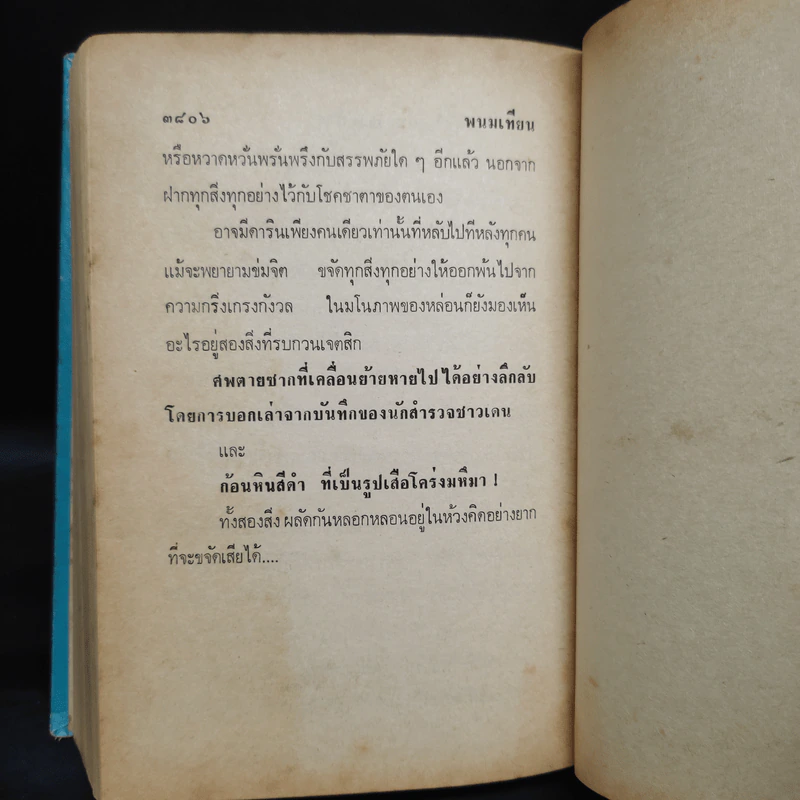 ๓๘๐๖ พนมเทียน
หรือหวาดหวั่นพรั่นพรึงกับสรรพภัยใด ๆ อีกแล้ว นอกจาก
ฝากทุกสิ่งทุกอย่างไว้กับโชคชาตาของตนเอง
อาจมีดารินเพียงคนเดียวเท่านั้นที่หลับไปทีหลังทุกคน
แม้จะพยายามข่มจิต ขจัดทุกสิ่งทุกอย่างให้ออกพ้นไปจาก
ความกริ่งเกรงกังวล ในมโนภาพของหล่อนก็ยังมองเห็น
อะไรอยู่สองสิ่งที่รบกวนเจตสิก
ศพตายซากที่เคลื่อนย้ายหายไปได้อย่างลึกลับ
โดยการบอกเล่าจากบันทึกของนักสำรวจชาวเดน
และ
ก้อนหินสีดำ ที่เป็นรูปเสือโคร่งมหึมา !
ทั้งสองสิ่ง ผลัดกันหลอกหลอนอยู่ในห้วงคิดอย่างยาก
ที่จะขจัดเสียได้....